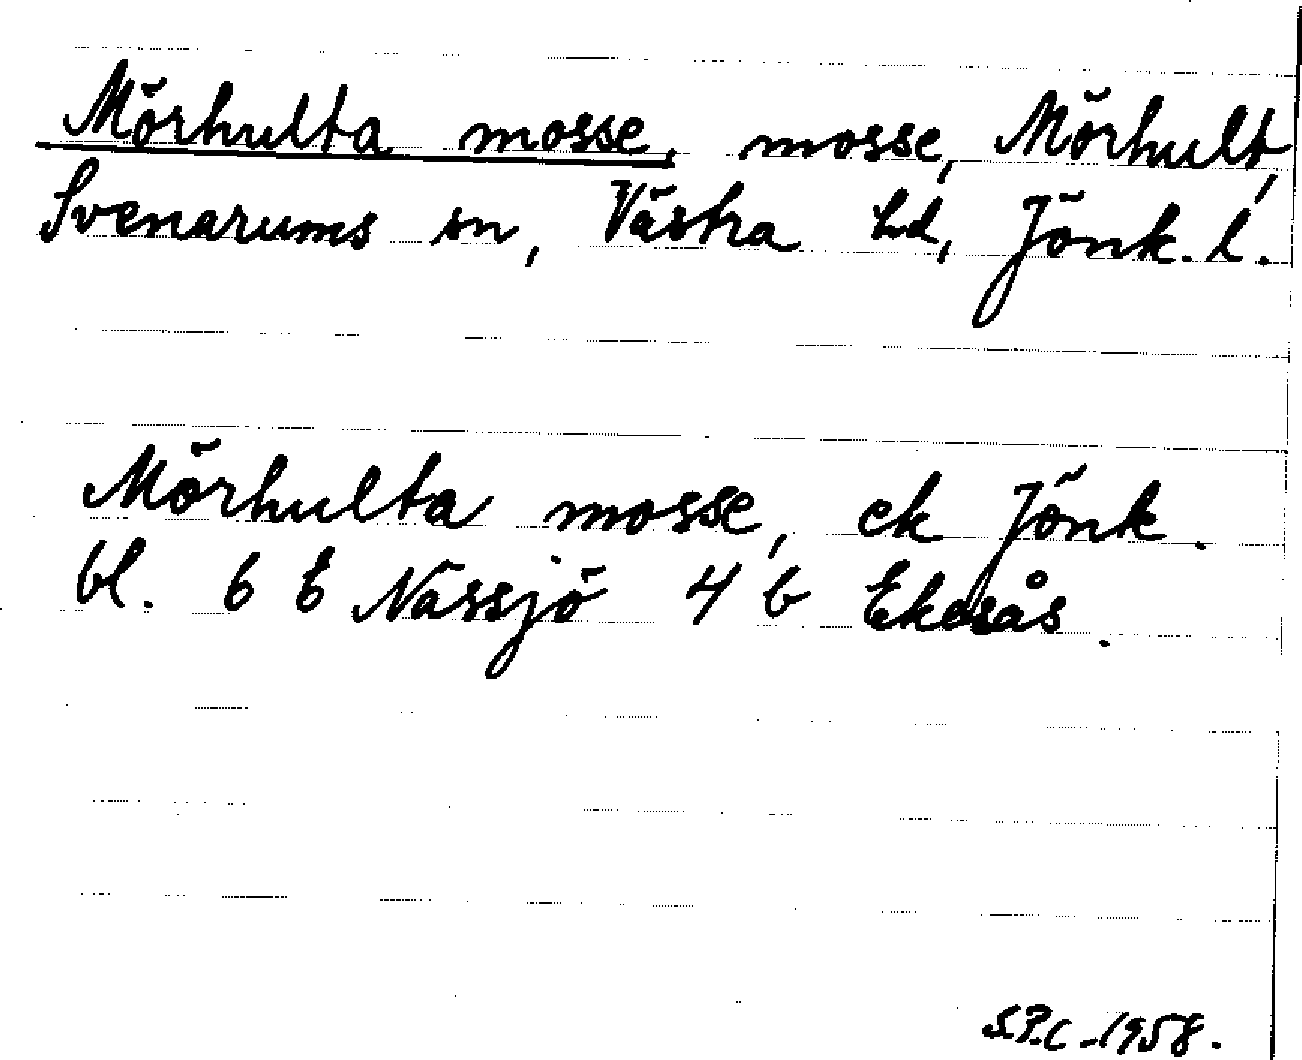 Mörhulta mosse, mosse, Mörhult,
Svenarums sn, Västra hd, Jönk. l.
Mörhulta mosse, ek Jönk.
bl. 6 E Nässjö 4 b Ekesås.
S.P.C -1958.